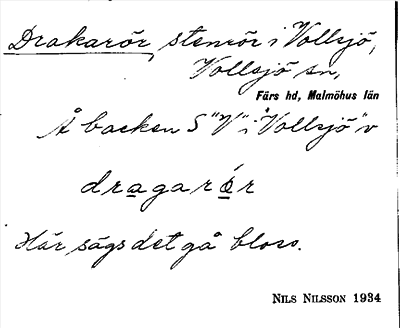 Drakarör, stenrör i Vollsjö,
Vollsjö sn,
Färs hd, Malmöhus län
Å backen S "V" i "Vollsjö" v
dragarör
Här sägs det gå bloss.
NILS NILSSON 1934